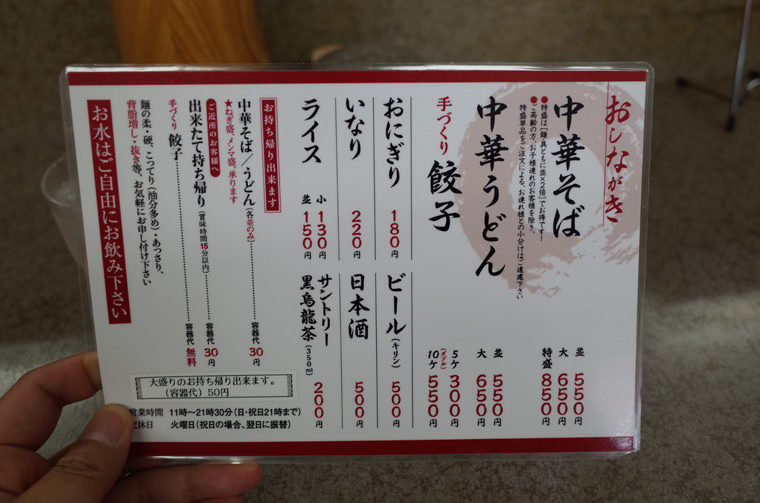 おしながき
中華そば
並 550円
大 650円
特盛 850円
●特盛は「麺・具ともに並×2倍」でお得です!
●ご高齢の方、お子様連れのお客様を除き、
特盛単品をご注文による、お連れ様との小分けはご遠慮下さい
中華うどん
並 550円
大 650円
手づくり 餃子
5ケ 300円
(ダブル)
10ケ 550円
おにぎり 180円
いなり 220円
ライス
小 130円
並 150円
ビール(キリン) 500円
日本酒 500円
サントリー
黒烏龍茶(350ml) 200円
お持ち帰り出来ます
中華そば/うどん(各並のみ) 容器代 30円
★ねぎ盛、メンマ盛、承ります
ご近所のお客様へ
出来たて持ち帰り(賞味時間15分以内) 容器代 30円
手づくり 餃子 容器代 無料
麺の柔・硬、こってり(油分多め)・あっさり、
背脂増し・抜き等、お気軽にお申し付け下さい
お水はご自由にお飲み下さい
大盛りのお持ち帰り出来ます。
(容器代)50円
営業時間 11時〜21時30分(日・祝日21時まで)
定休日 火曜日(祝日の場合、翌日に振替)